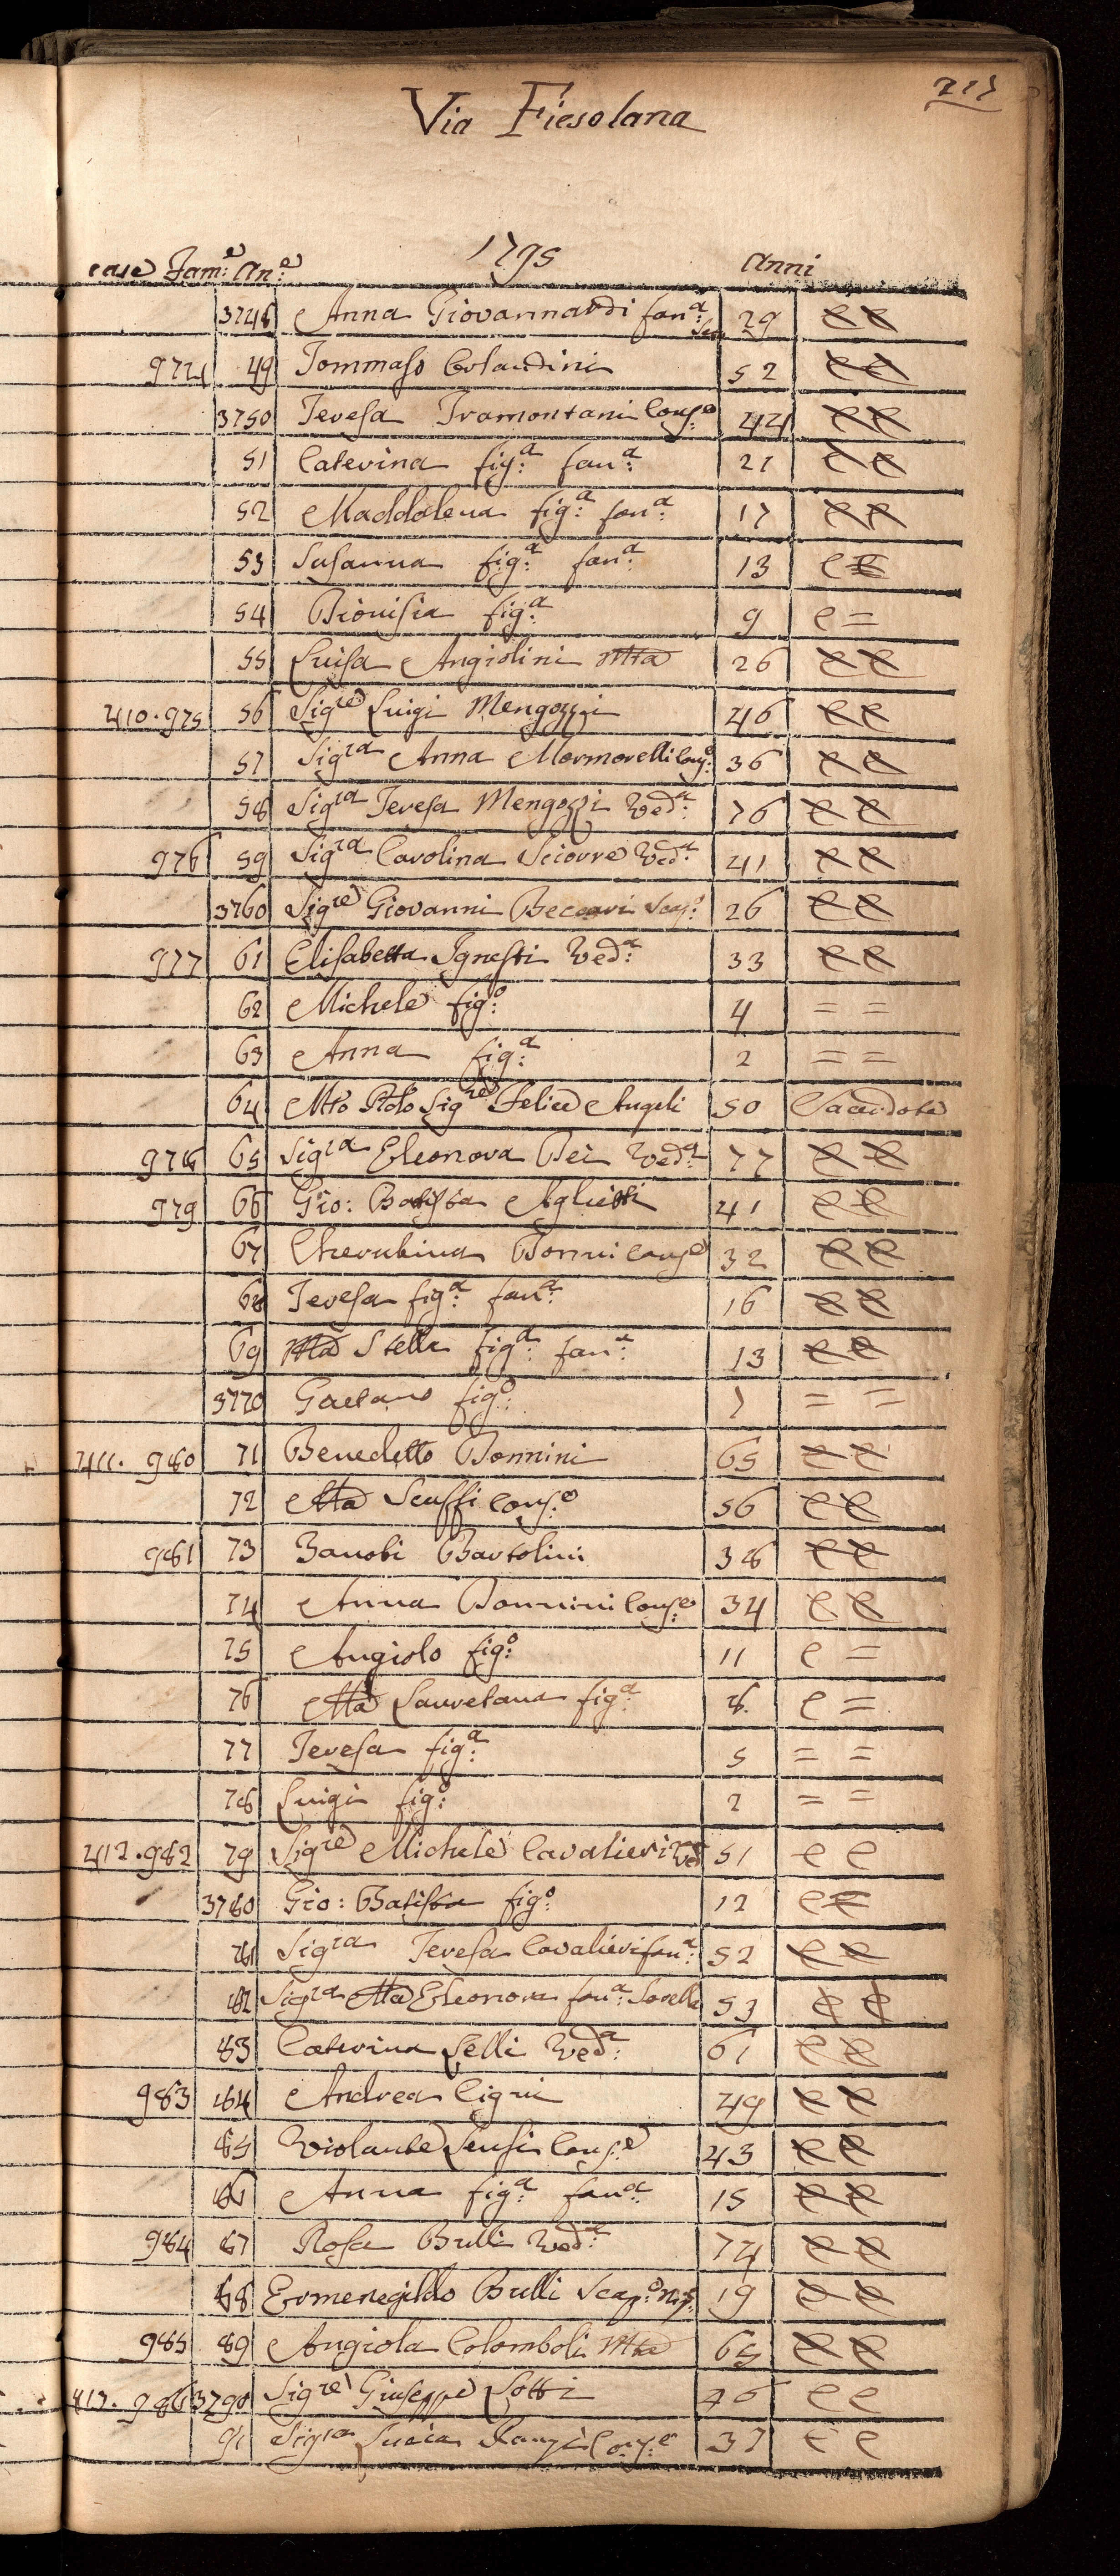 Via Fiesolana
1795
case Fam:e An:e Anni
3748 Anna Giovannardi fan:a 29 e e
974 49 Tommaso 52 e e
3750 Teresa Tramontani Cons:e 44 e e
51 Caterina fig:a fan:a 21 e e
52 Maddalena fig:a fan:a 17 e e
53 Susanna fig:a fan:a 13 e e
54 Dionisia fig:a 9 e =
55 Luisa Angiolini Mta 26 e e
410. 975 56 Sigre Luigi Mengozzi 46 e e
57 Sigra Anna Mormorelli Cons:e 36 e e
58 Sigra Teresa Mengozzi Ved:a 76 e e
976 59 Sigra Carolina Sciorre Ved:a 41 e e
3760 Sigre Giovanni Beccari Scap:o 26 e e
977 61 Elisabetta Ignesti Ved:a 33 e e
62 Michele fig:o 4 = =
63 Anna fig:a 2 = =
64 Mto Rdo Sigre Felice Angeli 50 Sacerdote
978 65 Sigra Eleonora Bei Ved:a 77 e e
979 66 Gio: Batista Aglietti 41 e e
67 Cherubina Bonini Cons:e 32 e e
68 Teresa fig:a fan:a 16 e e
69 Ma Stella fig:a fan:a 13 e e
3770 Gaetano fig:o 7 = =
411. 980 71 Benedetto Bonnini 65 e e
72 Ma Scuffi Cons:e 56 e e
981 73 Zanobi Bartolini 38 e e
74 Anna Bonnini Cons:e 34 e e
75 Angiolo fig:o 11 e =
76 Ma Lauretana fig:a 8 e =
77 Teresa fig:a 5 = =
78 Luigi fig:o 2 = =
412. 982 79 Sigre Michele Cavalieri Ved 51 e e
3780 Gio: Batista fig:o 12 e e
81 Sigra Teresa Cavalieri fan:a 52 e e
82 Sigra Ma Eleonora fan:a Sorella 53 e e
83 Caterina Lelli Ved:a 61 e e
983 84 Andrea Cigni 49 e e
85 Violante Sensi Cons:e 43 e e
86 Anna fig:a fan:a 15 e e
984 87 Rosa Brulli Ved:a 74 e e
88 Ermenegildo Brulli Scap:o Nip: 19 e e
985 89 Angiola Colomboli Mta 65 e e
413. 986 3790 Sigre Giuseppe Lotti 46 e e
91 Sigra Lucia Cons:e 37 e e